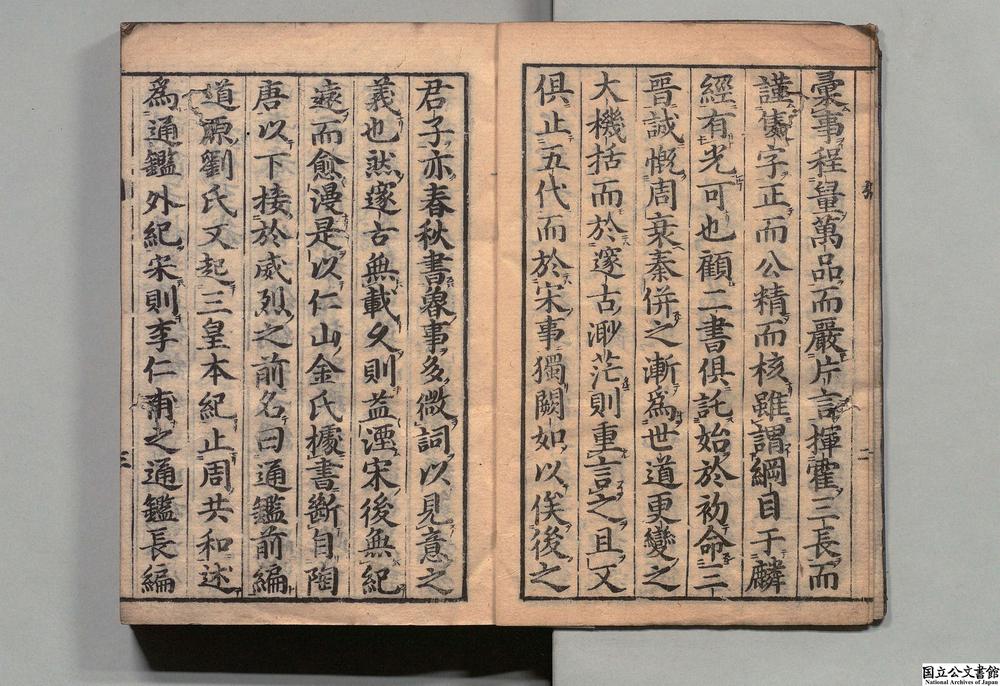 彙事程量萬品而嚴片言揮霍三長而
謹傋字正而公精而核雖謂綱目于麟
經有光可也顧二書俱託始於初命三
晉誠慨周衰秦併之漸爲世道更變之
大機括而於邃古渺茫則重言之且又
俱止五代而於宋事獨闕如以俟後之
君子亦春秋書魯事多微詞以見意之
義也然邃古無載久則益湮宋後無紀
遠而愈漫是以仁山金氏據書斷自陶
唐以下接於威烈之前名曰通鑑前編
道原劉氏又起三皇本紀止周共和述
爲通鑑外紀宋則李仁甫之通鑑長編
国立公文書館
National Archives of Japan